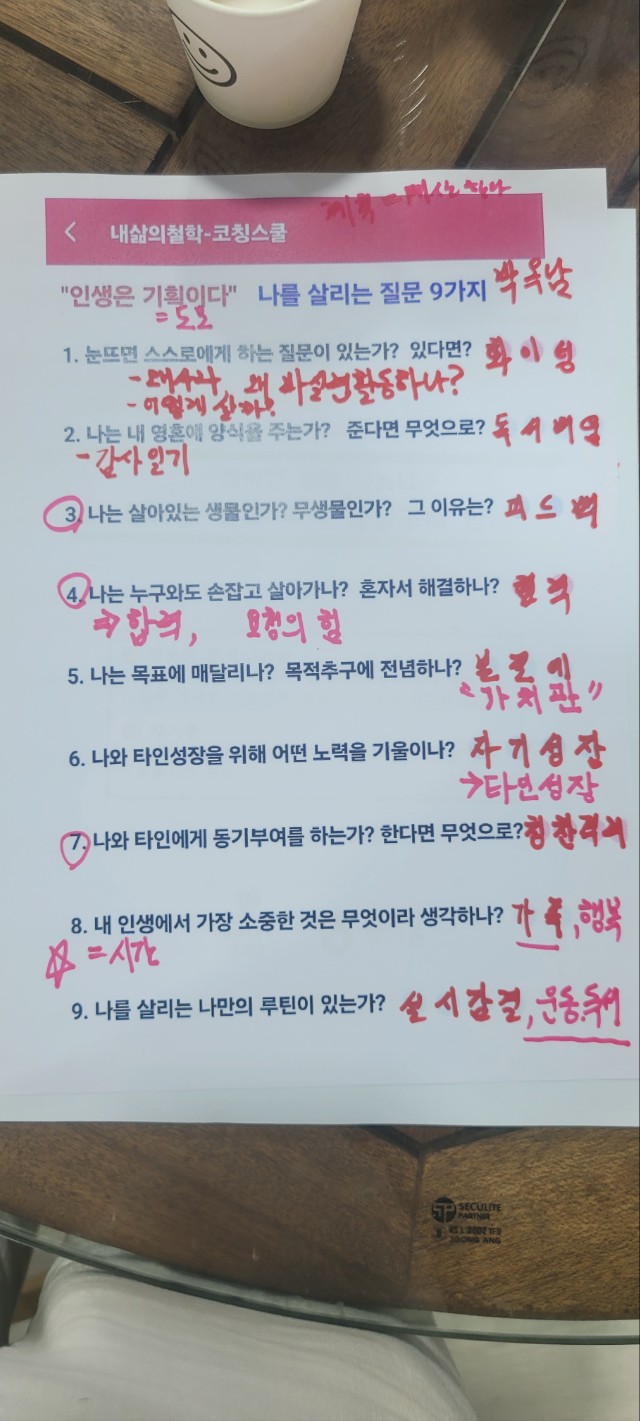 < 내삶의철학-코칭스쿨
"인생은 기획이다" 나를 살리는 질문 9가지 박옥남
= 도모
1. 눈뜨면 스스로에게 하는 질문이 있는가? 있다면? 화이영
2. 나는 내 영혼에 양식을 주는가? 준다면 무엇으로? 독서
- 감사일기
3. 나는 살아있는 생물인가? 무생물인가? 그 이유는? 피드백
4. 나는 누구와도 손잡고 살아가나? 혼자서 해결하나? 협력
⇒ 합력, 요청의 힘
5. 나는 목표에 매달리나? 목적추구에 전념하나? 본질에
"가치관"
6. 나와 타인성장을 위해 어떤 노력을 기울이나? 자기성장
→타인성장
7. 나와 타인에게 동기부여를 하는가? 한다면 무엇으로? 칭찬격려
8. 내 인생에서 가장 소중한 것은 무엇이라 생각하나? 가족, 행복
☆ = 시간
9. 나를 살리는 나만의 루틴이 있는가? 실시감결, 운동.독서
SP SECULITE
PARTNER